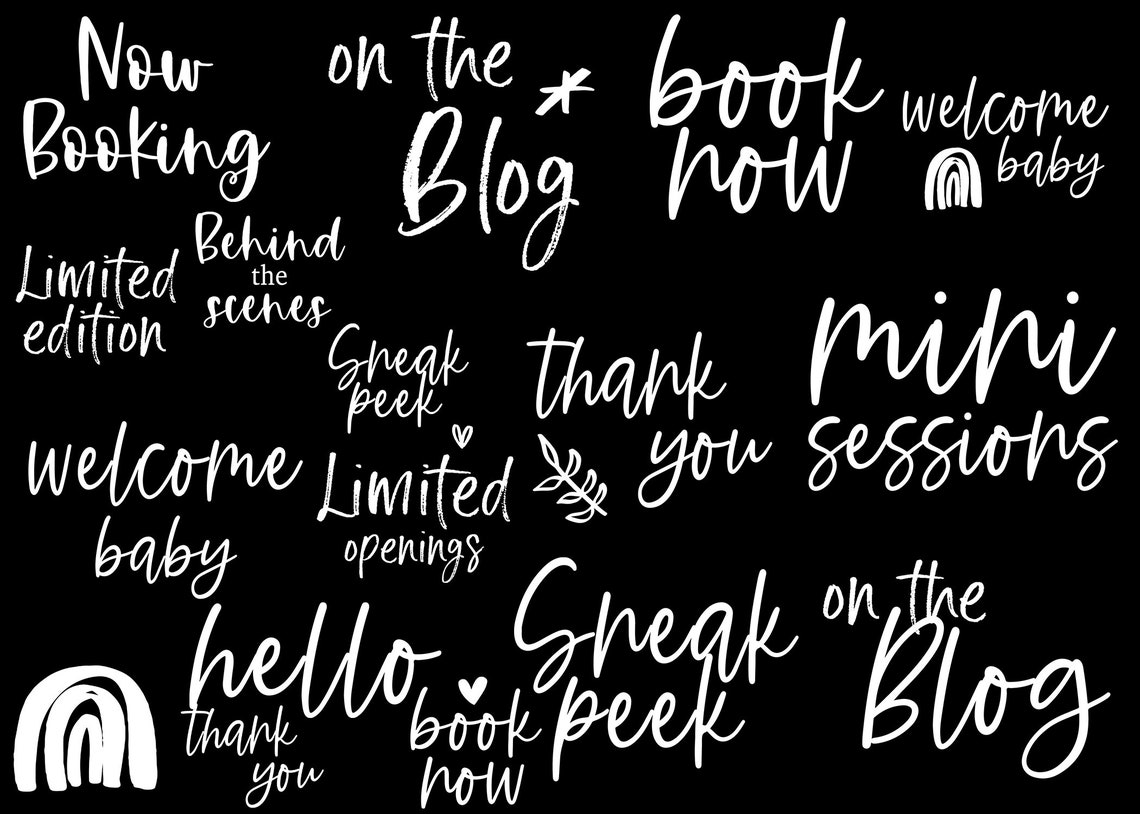 Now
Booking
on the
Blog
book
now
welcome
baby
Limited
edition
Behind
the
scenes
Sneak
peek
thank
you
mini
sessions
welcome
baby
Limited
openings
hello
thank
you
book
now
Sneak
peek
on the
Blog